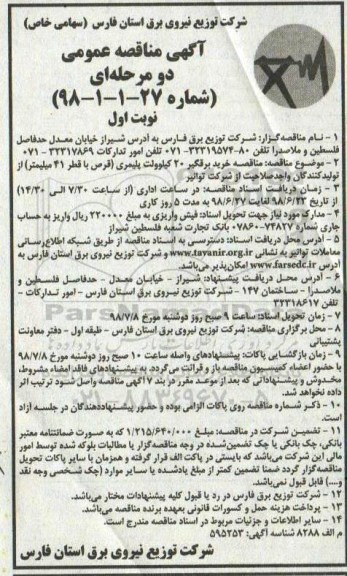 شرکت توزیع نیروی برق استان فارس (سهامی خاص)
آگهی مناقصه عمومی
دو مرحله‌ای
(شماره ۲۷-۱-۱-۹۸)
نوبت اول
۱ - نام مناقصه‌گزار: شرکت توزیع برق فارس به آدرس شیراز خیابان معدل حدفاصل
فلسطین و ملاصدرا تلفن ۸۰-۳۲۳۱۹۵۷۴-۰۷۱ تلفن امور تدارکات ۳۲۳۱۷۸۶۹-۰۷۱
۲ - موضوع مناقصه: مناقصه خرید برقگیر ۲۰ کیلوولت پلیمری (قرص با قطر ۴۱ میلیمتر) از
تولیدکنندگان واجدصلاحیت از شرکت توانیر
۳ - زمان دریافت اسناد مناقصه: در ساعت اداری (از ساعت ۷/۳۰ الی ۱۴/۳۰)
از تاریخ ۹۸/۶/۲۳ لغایت ۹۸/۶/۲۷ به مدت ۵ روز کاری
۴ - مدارک مورد نیاز جهت تحویل اسناد: فیش واریزی به مبلغ ۲۲۰۰۰۰ ریال واریز به حساب
جاری شماره ۰۷۸۶۰-۷۴۸۲۷ بانک تجارت شعبه فلسطین شیراز
۵ - آدرس محل دریافت اسناد: دسترسی به اسناد مناقصه از طریق شبکه اطلاع‌رسانی
معاملات توانیر به نشانی www.tavanir.org.ir و شرکت توزیع برق استان فارس به
آدرس www.farsedc.ir امکان‌پذیر می‌باشد.
۶ - آدرس محل دریافت پیشنهاد: شیراز - خیابان معدل - حدفاصل فلسطین و
ملاصدرا - ساختمان ۱۴۷ - شرکت توزیع نیروی برق استان فارس - امور تدارکات -
تلفن ۳۲۳۱۸۶۱۷
۷ - زمان تحویل اسناد: ساعت ۹ صبح روز دوشنبه مورخ ۹۸/۷/۸
۸ - محل برگزاری مناقصه: شرکت توزیع نیروی برق استان فارس - طبقه اول - دفتر معاونت
پشتیبانی
۹ - زمان بازگشایی پاکات: پیشنهادهای واصله ساعت ۱۰ صبح روز دوشنبه مورخ ۹۸/۷/۸
با حضور اعضاء کمیسیون مناقصه باز و قرائت می‌گردد. به پیشنهادهای فاقد امضاء مشروط،
مخدوش و پیشنهاداتی که بعد از موعد مقرر در بند ۷ آگهی مناقصه واصل شود ترتیب اثر
داده نخواهد شد.
۱۰ - ذکر شماره مناقصه روی پاکات الزامی بوده و حضور پیشنهاددهندگان در جلسه آزاد
است.
۱۱ - تضمین شرکت در مناقصه: مبلغ ۱/۲۱۵/۶۴۰/۰۰۰ که به صورت ضمانتنامه معتبر
بانکی، چک بانکی یا چک تضمین‌شده در وجه مناقصه‌گزار یا مطالبات بلوکه شده توسط امور
مالی این شرکت می‌باشد که بایستی در پاکت الف قرار گرفته و همزمان با سایر پاکات تحویل
مناقصه‌گزار گردد ضمنا تضمین کمتر از مبلغ یادشده یا سایر موارد (چک شخصی وجه نقد
و....) قابل قبول نمی‌باشد.
۱۲ - شرکت توزیع برق فارس در رد یا قبول کلیه پیشنهادات مختار می‌باشد.
۱۳ - پرداخت هزینه حمل و کسورات قانونی بعهده برنده مناقصه می‌باشد.
۱۴ - سایر اطلاعات و جزئیات مربوط در اسناد مناقصه مندرج است.
م الف ۸۲۸۸ شناسه آگهی: ۵۹۵۲۵۳
شرکت توزیع نیروی برق استان فارس